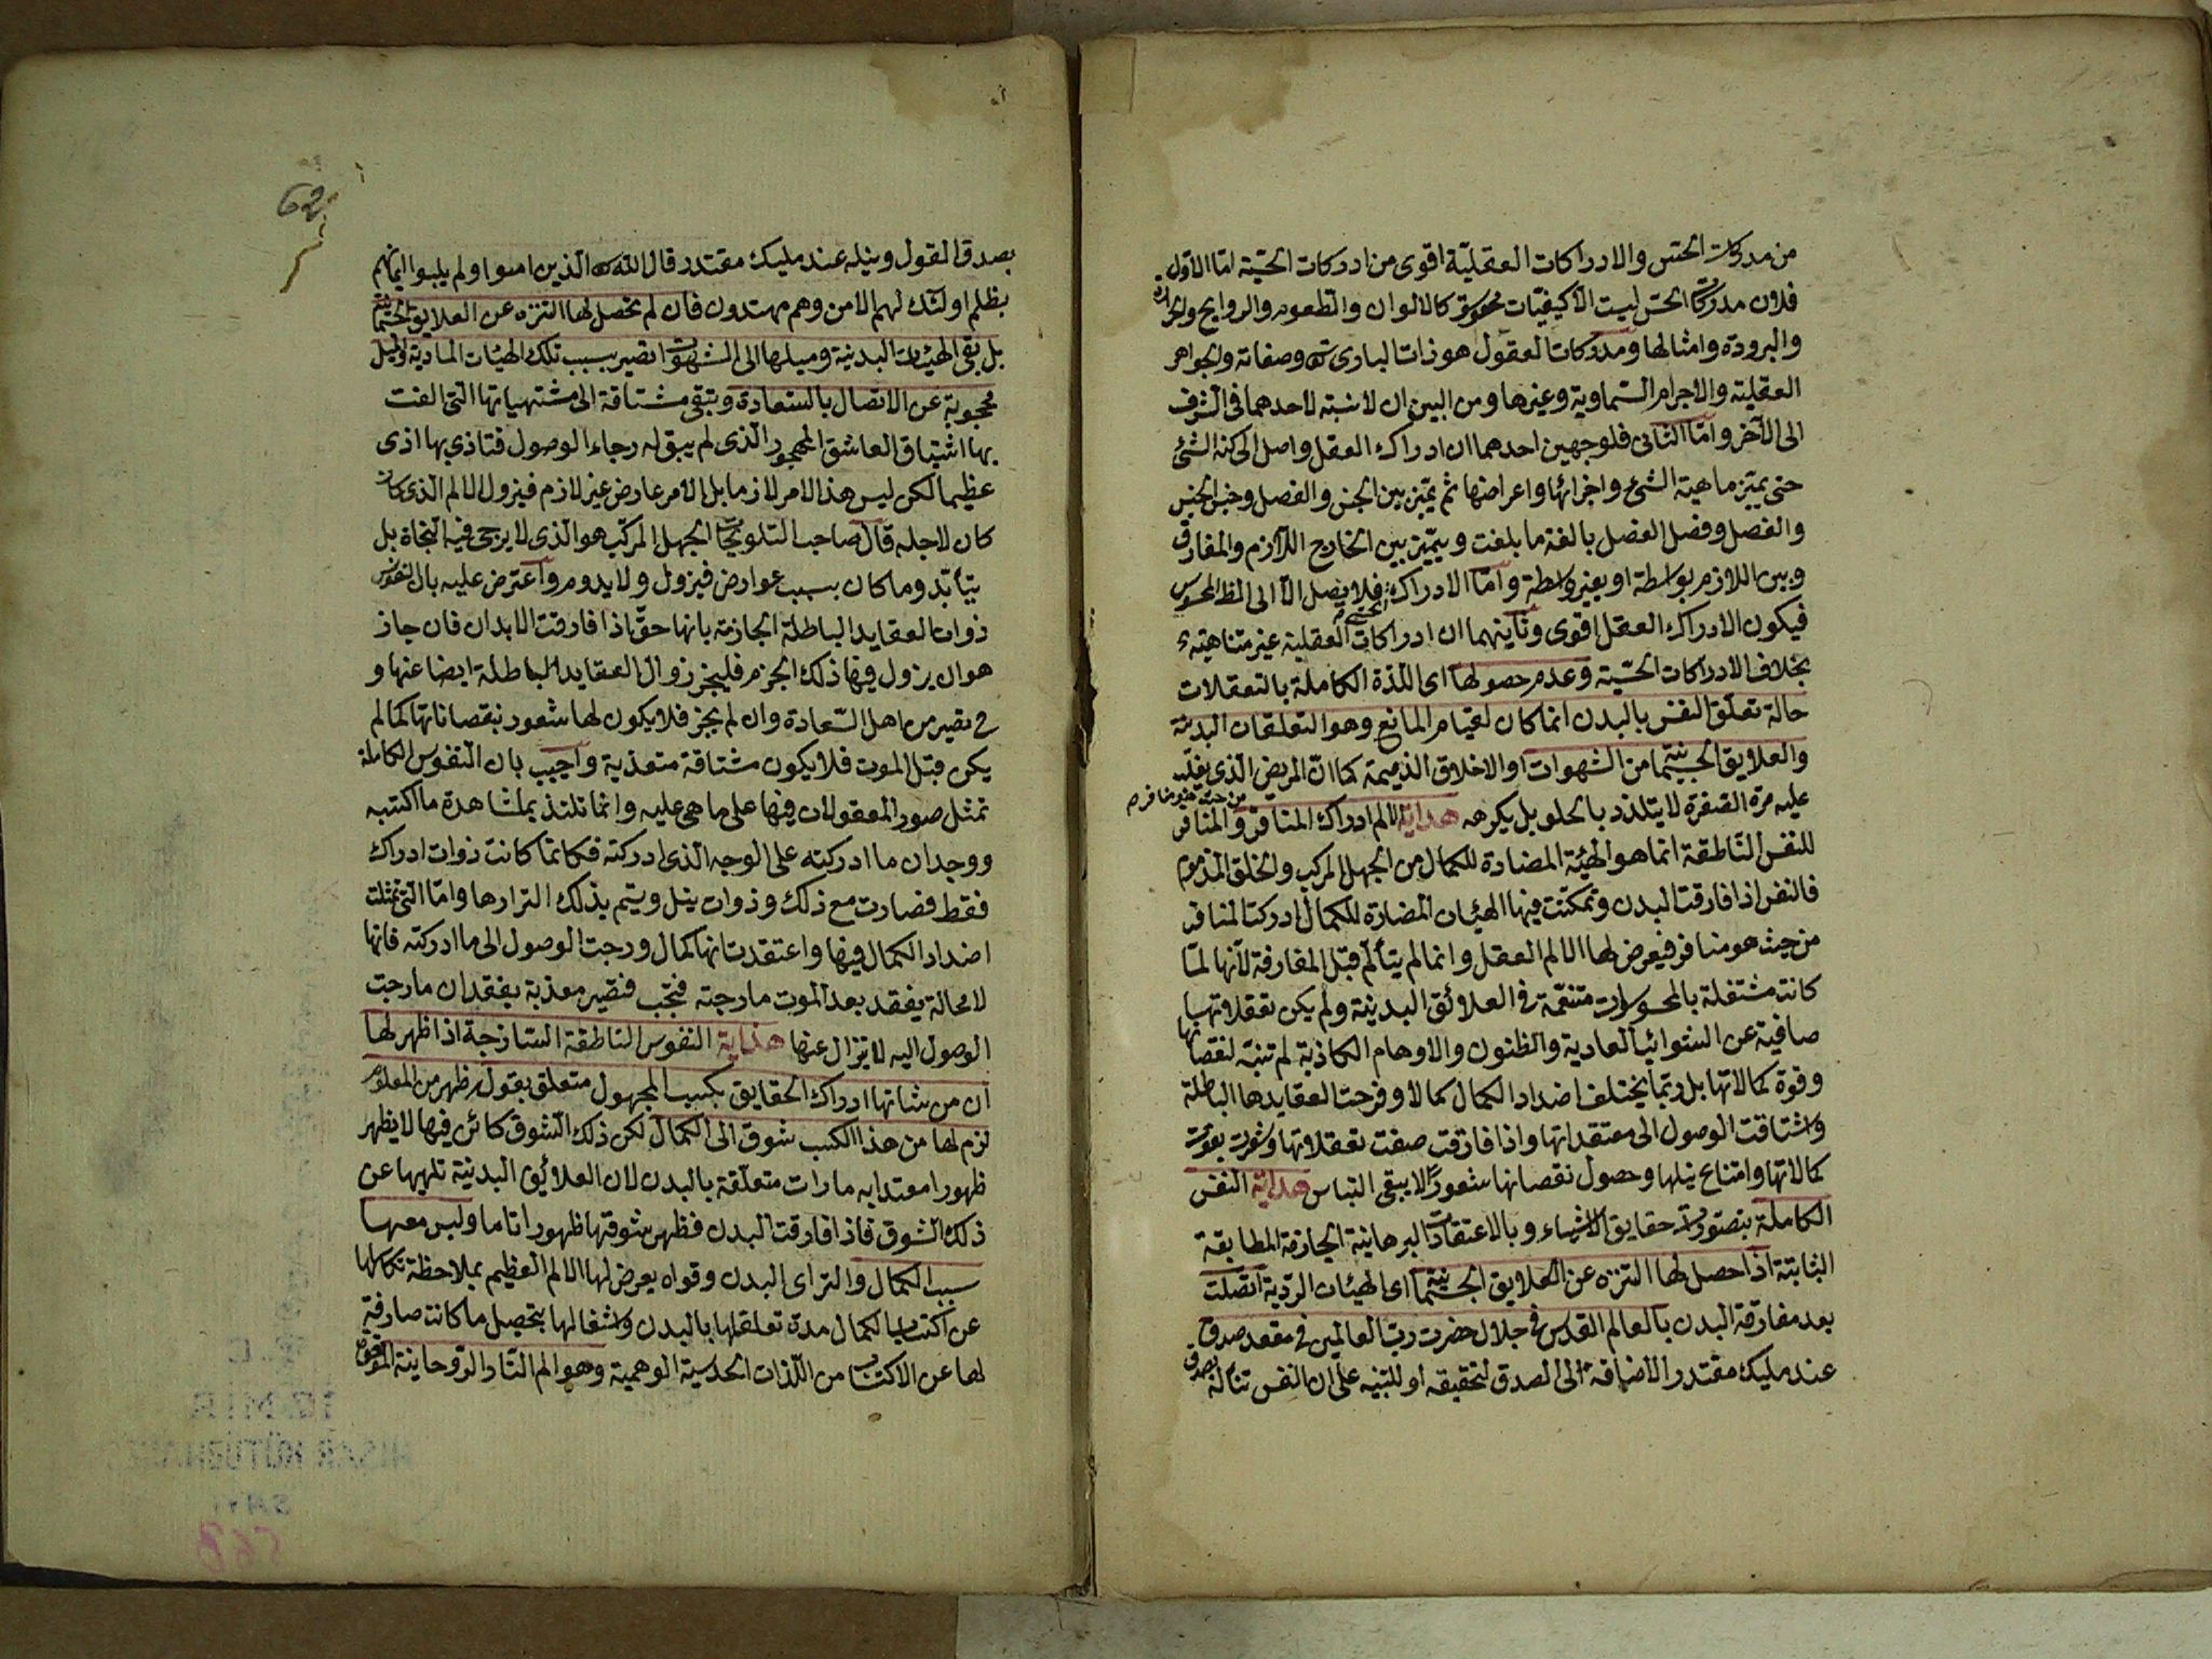 من مدركات الحس والادراكات العقلية اقوى من ادركات الحسية اما الاول
فلان مدركات الحس ليست الا كيفيات محسوسة كالالوان والطعوم والروايح والحرارة
والبرودة وامثالها ومدركات العقول هو ذات البارى تع وصفاته والجواهر
العقلية والاجرام السماوية وغيرها ومن البين ان لا نسبة لاحدهما فى الشرف
الى الآخر واما الثانى فلوجهين احدهما ان ادراك العقل واصل الى كنه الشئ
حتى يميز ماهية الشئ واجزائها واعراضها ثم يميز بين الجنس والفصل وجنس الجنس
والفصل وفصل الفصل بالغة ما بلغت ويميز بين الخارج اللازم والمفارق
وبين اللازم بواسطة او بغير واسطة واما الادراك الحسى فلا يصل الا الى المحسوس
فيكون الادراك العقل اقوى وثانيهما ان ادراكات العقلية غير متناهية
بخلاف الادراكات الحسية وعدم حصولها اى اللذة الكاملة بالتعقلات
حالة تعلق النفس بالبدن انما كان لقيام المانع وهو التعلقات البدنية
والعلايق الجسمانية من الشهوات او الاخلاق الذميمة كما ان المريض الذى يغلب
عليه مرة الصفرة لا يتلذذ بالحلو بل يكرهه هداية الالم ادراك المنافر من حيث هو منافر م والمنافر
للنفس الناطقة انما هو الهيئة المضادة للكمال من الجهل المركب والخلق المذموم
فالنفس اذا فارقت البدن وتمكنت فيها الهيئات المضارة للكمال ادركت المنافر
من حيث هو منافر فيعرض لها الالم العقل وانما لم يتألم قبل المفارقة لانها لما
كانت مشتغلة بالمحسوسات منغمة فى العلائق البدنية ولم يكن تعقلاتها
صافية عن الشوائب العادية والظنون والاوهام الكاذبة لم تنبه لنقصاناتها
وقوة كمالاتها بل ربما يختلف اضداد الكمال كمالا وفرحت العقايدها الباطلة
واشتاقت الوصول الى معتقداتها واذا فارقت صفت تعقلاتها وشعرت بفوت
كمالاتها وامتناع نيلها وحصول نقصانها شعورا لا يبقى التباس هداية النفس
الكاملة بتصورات حقايق الاشياء وبالاعتقادات البرهانية الجازمة المطابقة
الثابتة اذا حصل لها التنزه عن العلايق الجسمانية اى الهيئات الردية اتصلت
بعد مفارقة البدن بالعالم القدس فى جلال حضرت رب العالمين فى مقعد صدق
عند مليك مقتدر الاضافة الى الصدق لتحقيقه او للتنبيه على ان النفس تناله بصدق
بصدق القول ونيله عند مليك مقتدر قال الله تع الذين امنوا ولم يلبسوا ايمانهم
بظلم اولئك لهم الامن وهم مهتدون فان لم تحصل لها التنزه عن العلايق الجسمانية
بل بقى الهيئات البدنية وميلها الى الشهوات تصير بسبب تلك الهيئات المادية والميل
محجوبة عن الاتصال بالسعادة وتبقى مشتاقة الى مشتهياتها التى الفت
بها اشتياق العاشق المهجور الذى لم يبق له رجاء الوصول فتاذى بها اذى
عظيما لكن ليس هذا الامر لازما بل الامر عارض غير لازم فيزول الالم الذى كان
كان لاجله قال صاحب التلويحات الجهل المركب هو الذى لا يرجى فيه النجاة بل
يتأبد وما كان بسبب عوارض فيزول ولا يدوم واعترض عليه بان النفوس
ذوات العقايد الباطلة الجازمة بانها حق اذا فارقت الابدان فان جاز
هو ان يزول فيها ذلك الجزم فليجز زوال العقايد الباطلة ايضا عنها و
ح تصير من اهل السعادة وان لم يجز فلا يكون لها شعور بنقصاناتها كما لم
يكن قبل الموت فلا يكون مشتاقة متعذبة واجيب بان النفوس الكاملة
تمثل صور المعقولات فيها على ما هى عليه وانما تلتذ بمشاهدة ما اكتسبه
ووجدان ما ادركته على الوجه الذى ادركته فكانما كانت ذوات ادراك
فقط فصارت مع ذلك وذوات نيل ويتم بذلك التذاذها واما التى تمثلت
اضداد الكمال فيها واعتقدت انها كمال ورجت الوصول الى ما ادركته فانها
لا محالة يفقد بعد الموت ما رجته فتصير معذبة بفقدان ما رجت
الوصول اليه لا تزال عنها هداية النفوس الناطقة الساذجة اذا ظهر لها
ان من شانها ادراك الحقايق بكسب المجهول متعلق بقوله ظهر من المعلوم
لزم لها من هذا الكسب شوق الى الكمال لكن ذلك الشوق كائن فيها لا يظهر
ظهورا معتدا به مادامت متعلقة بالبدن لان العلائق البدنية تلهيها عن
ذلك الشوق فاذا فارقت البدن فظهر شوقها ظهورا تاما وليس معها
سبب الكمال والتر اى البدن وقواه يعرض لها الالم العظيم بملاحظة
عن اكتساب الكمال مدة تعلقلها بالبدن واشغالها بتحصيل ما كانت صارفة
لها عن الاكتساب من اللذات الحسية الوهمية وهو الم النار الروحانية
62